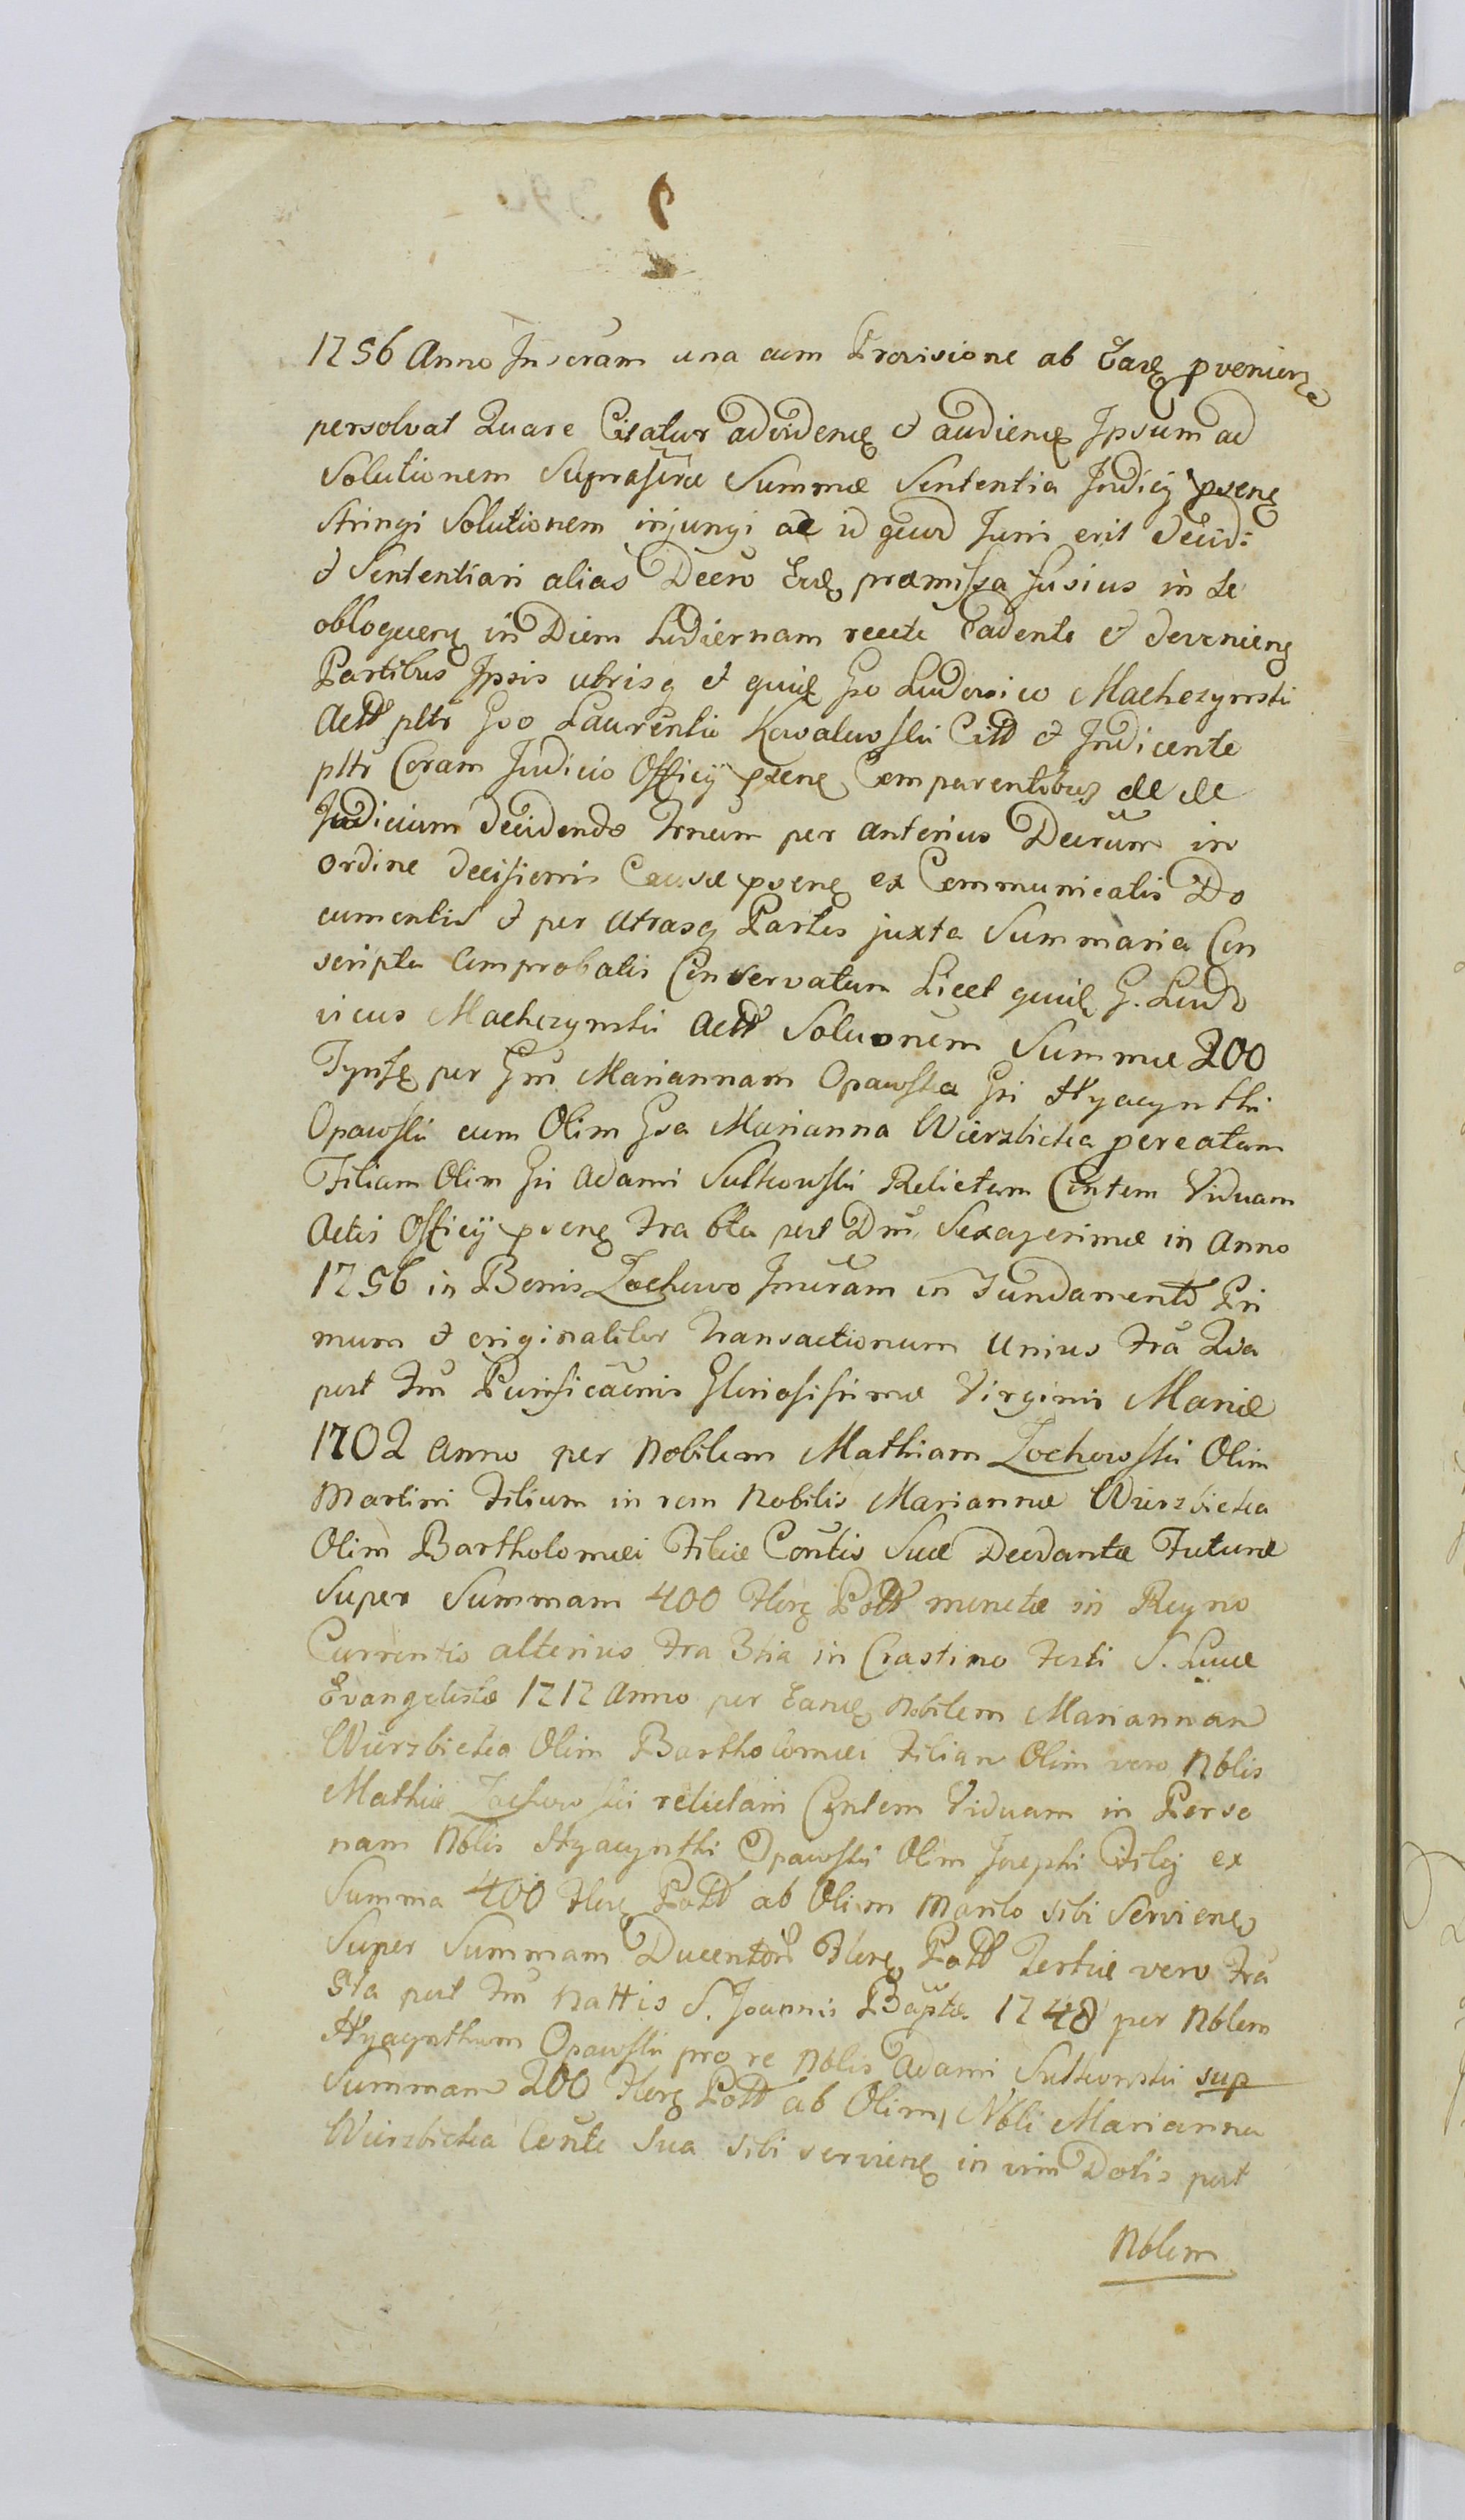 1756 Anno Inscram una cum Provisione ab Eadę pvenien
persolvat Quare Citatur advidenę et audienę Ipsum ad
Solutionem Suprascrae Summae Sententia Judicij psenę
Stringi Solutionem injungi ac id quod Juris erit decid:
et Sententiari alias Decro premissa fusius in se
obloquenę in Diem hodiernam recte Cadente et devenienę
Partibus Ipsis utrisq et quidę Gso Ludovico Machczynski
Actt pltr Gso Laurentio Kowalewski Citt et Indicente
pltr Coram Judicio Officij psenę Comparentibus
Judicium decidendo per anterius Decrum in
ordine decisionis Causae psenę ex Communicatis Do
cumentis et per Utrasq Partes juxta Summaria Con
scripta Comprobatis Conservatum Licet quidę G. Ludo
vicus Machczynski Actt Solucionem Summae 200
Tynfę per Gsm Mariannam Opawska Gsi Hyacynthi
Opawski cum Olim Gsa Marianna Wierzbicka pcreatam
Filiam Olim Gsi Adami Sulkowski Relictam Contem Viduam
Actis Officij psenę Fra 6ta post Dm Sexagesimae in Anno
1756 in Bonis Zochowo Inscram in Fundamento Pri
mum et originaliter Transactionum Unius Fra 2da
post Fm Purificaonis Gloriosissimae Virginis Mariae
1702 Anno per Nobilem Mathiam Zochowski Olim
Martini Filium in rem Nobilis Mariannae Wierzbicka
Olim Bartholomaei Filiae Contis Suae Futurae
Super Summam 400 Florę Poltt monetae in Regno
Currentis alterius Fra 3tia in Crastino Festi S. Lucae
Evangelistae 1717 Anno per Eandę Nobilem Mariannan
Wierzbicka Olim Bartholomaei Filian Olim vero Nblis
Mathiae Zochowski relictam Contem Viduam in Perso
nam Nblis Hyacynthi Opawski Olim Josephi Filij ex
Summa 400 Florę Poltt ab Olim Marito sibi Servienę
Super Summam Ducentor Florę Poltt Tertiae vero Fra
5ta post Fm Nattis S. Joannis Baptae 1748 per Nblem
Hyacynthum Opawski pro re Nblis Adami Sulkowski sup
Summam 200 Florę Poltt ab Olim Nbli Marianna
Wierzbicka Conte Sua sibi servienę in vim Dotis post
Nblem